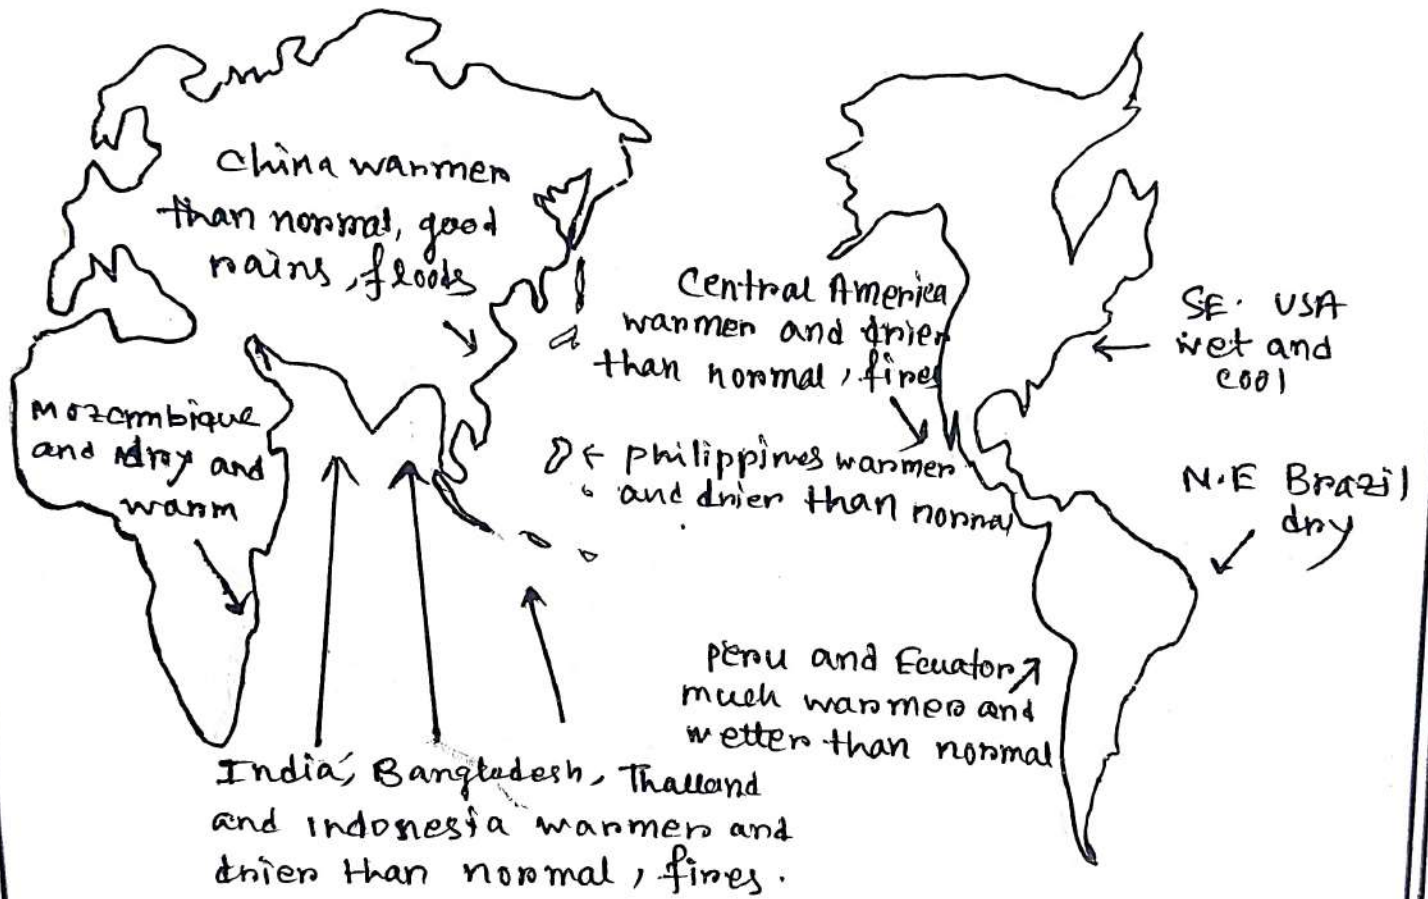 China warmer
than normal, good
rains, floods
Central America
warmer and drier
than normal, fires
SE. USA
wet and
cool
Mozambique
and dry and
warm
Philippines warmer
and drier than normal
N.E Brazil
dry
Peru and Ecuator
much warmer and
wetter than normal
India, Bangladesh, Thailand
and indonesia warmer and
drier than normal, fires.